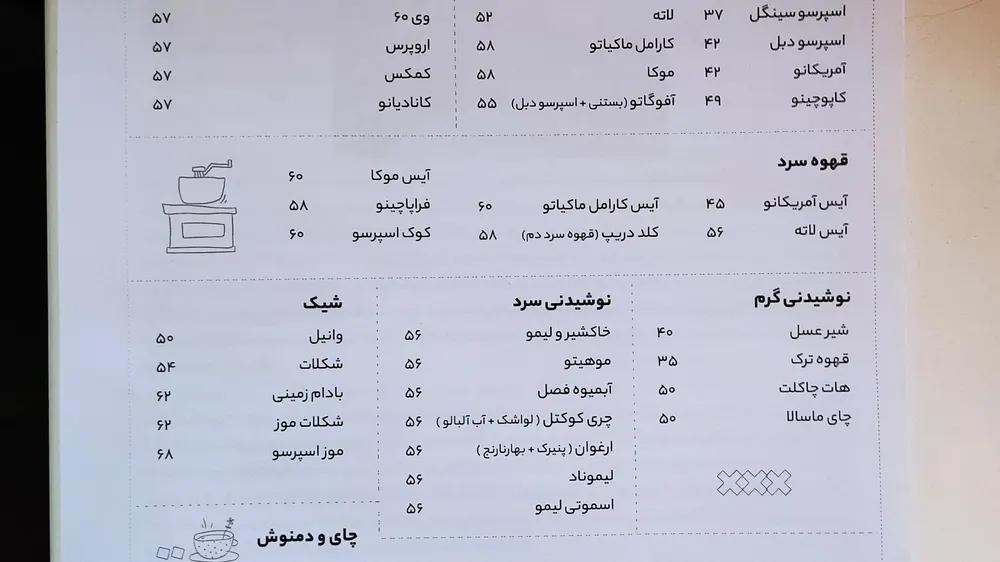 اسپرسو سینگل ۳۷
اسپرسو دبل ۴۲
آمریکانو ۴۲
کاپوچینو ۴۹
لاته ۵۲
کارامل ماکیاتو ۵۸
موکا ۵۸
آفوگاتو (بستنی + اسپرسو دبل) ۵۵
وی ۶۰ ۵۷
اروپرس ۵۷
کمکس ۵۷
کانادیانو ۵۷
قهوه سرد
آیس آمریکانو ۴۵
آیس لاته ۵۶
آیس کارامل ماکیاتو ۶۰
کلد دریپ (قهوه سرد دم) ۵۸
آیس موکا ۶۰
فراپاچینو ۵۸
کوک اسپرسو ۶۰
نوشیدنی گرم
شیر عسل ۴۰
قهوه ترک ۳۵
هات چاکلت ۵۰
چای ماسالا ۵۰
نوشیدنی سرد
خاکشیر و لیمو ۵۶
موهیتو ۵۶
آبمیوه فصل ۵۶
چری کوکتل ( لواشک + آب آلبالو ) ۵۶
ارغوان ( پنیرک + بهارنارنج ) ۵۶
لیموناد ۵۶
اسموتی لیمو ۵۶
شیک
وانیل ۵۰
شکلات ۵۴
بادام زمینی ۶۲
شکلات موز ۶۲
موز اسپرسو ۶۸
چای و دمنوش